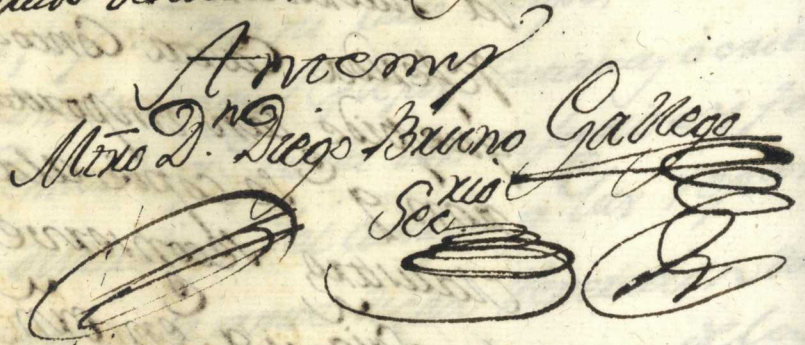 Ante my
Mtro̅ D.ⁿ Diego Bruno Gallego
Secrio